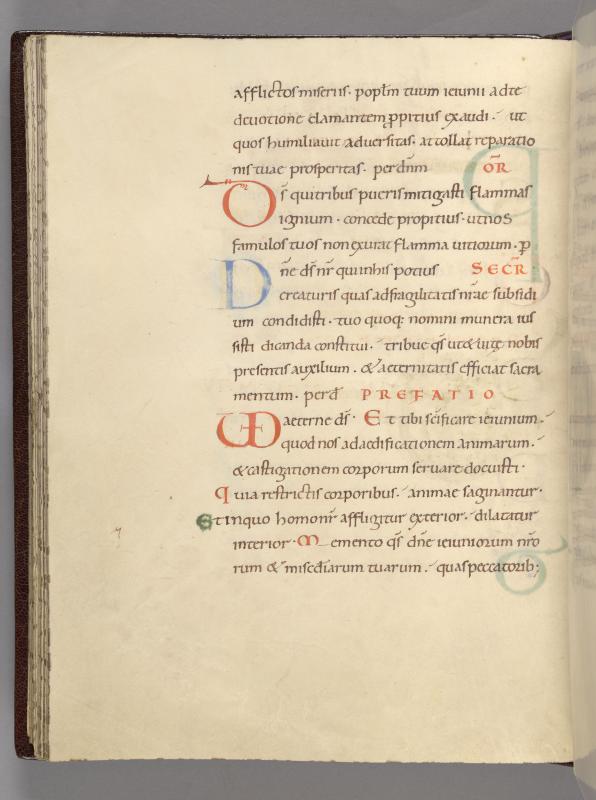 afflictos miseriis. popłm tuum ieiunii ad te
deuotione clamantem ꝓpitius exaudi. ut
quos humiliauit aduersitas. attollat reparatio
nis tuae prosperitas. per dnm̄ OR̄
Ds̄ qui tribus pueris mitigasti flammas
ignium. concede propitius. ut nos
famulos tuos non exurat flamma uitiorum. ꝑ
Dn̄e ds̄ nr̄ qui in his potius SECR̄
creaturis quas ad fragilitatis nr̄ae subsidi
um condidisti. tuo quoq: nomini munera ius
sisti dicanda constitui. tribue qs̄ ut & uitę nobis
presentis auxilium. & aeternitatis efficiat sacra
mentum. per d̄ PREFATIO
VD aeterne ds̄. Et tibi sc̄ificare ieiunium.
quod nos ad aedificationem animarum.
& castigationem corporum seruare docuisti.
Quia restrictis corporibus. animae saginantur.
Et in quo homo nr̄ affligitur exterior. dilatatur
interior. Memento qs̄ dn̄e ieiuniorum nr̄o
rum & misc̄diarum tuarum. quas peccatorib;